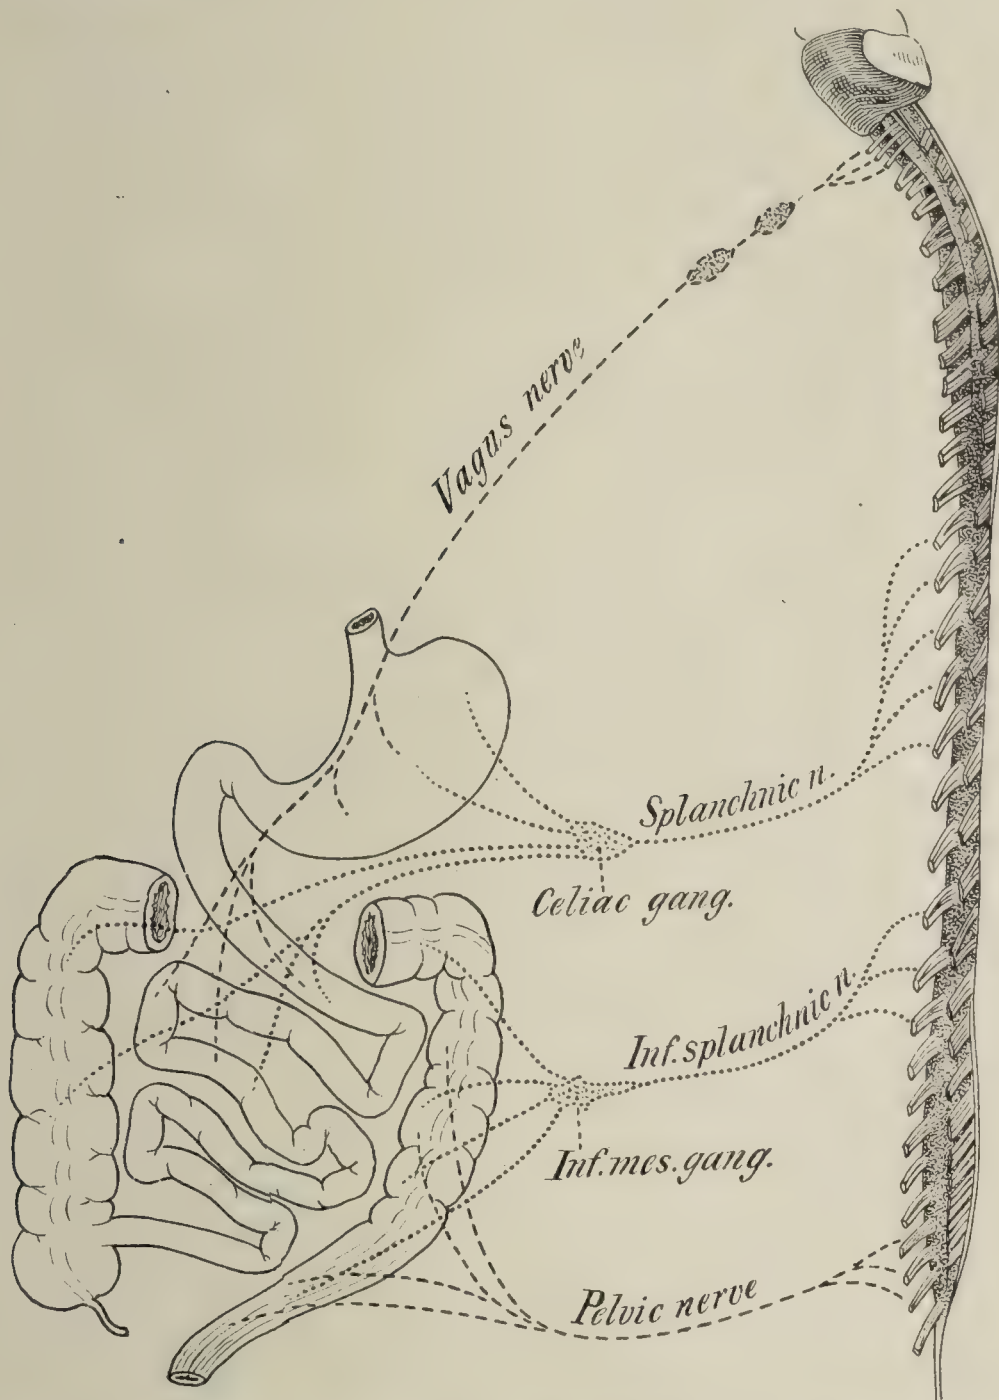 Vagus nerve
Splanchnic n.
Celiac gang.
Inf. splanchnic n.
Inf. mes. gang.
Pelvic nerve